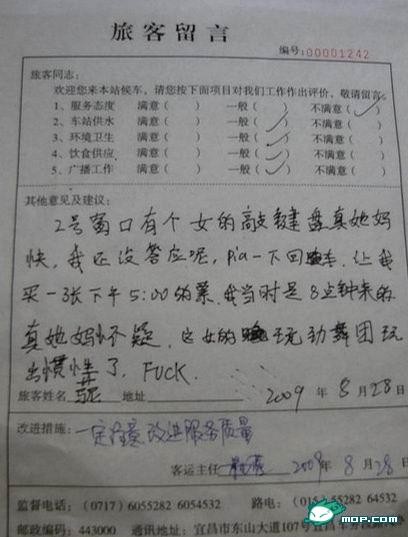 旅客留言
编号:00001242
旅客同志:
欢迎您来本站候车,请您按下面项目对我们工作作出评价,敬请留言。
1、服务态度 满意( ) 一般( ) 不满意(✓)
2、车站供水 满意( ) 一般(✓) 不满意( )
3、环境卫生 满意( ) 一般(✓) 不满意( )
4、饮食供应 满意( ) 一般(✓) 不满意( )
5、广播工作 满意( ) 一般(✓) 不满意( )
其他意见及建议:
2号窗口有个女的敲键盘真她妈
快,我还没答应呢,pia一下回车,让我
买一张下午5:00的票,我当时是8点钟来的
真她妈怀疑,这女的玩劲舞团玩
出惯性了,FUCK.
旅客姓名 地址 2009年8月28日
改进措施:一定注意改进服务质量
客运主任 2009年8月28日
监督电话:(0717)6055282 6054532 路电:(015 55282 64532
邮政编码:443000 通讯地址:宜昌市东山大道107号宜昌车务
MOP.COM